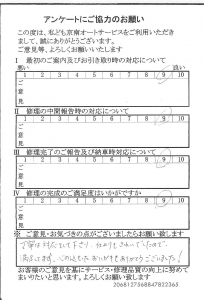 アンケートにご協力のお願い
この度は、私ども京南オートサービスをご利用いただき
まして、誠にありがとうございます。
ご意見等、よろしくお願いいたします
Ⅰ 最初のご案内及びお引き取り時の対応について
悪い 良い
1 2 3 4 5 6 7 8 9 10
ご意見
Ⅱ 修理の中間報告時の対応について
1 2 3 4 5 6 7 8 9 10
ご意見
Ⅲ 修理完了のご報告及び納車時対応について
1 2 3 4 5 6 7 8 9 10
ご意見
Ⅳ 修理の完成のご満足度はいかがですか
1 2 3 4 5 6 7 8 9 10
ご意見
※ ご意見・お気づきの点がございましたらお願い致します
丁寧な対応をして下さり、
満足してます。
お客様のご意見を基にサービス・修理品質の向上に努めて
まいりたいと思います。よろしくお願い致します
2068127568847822365